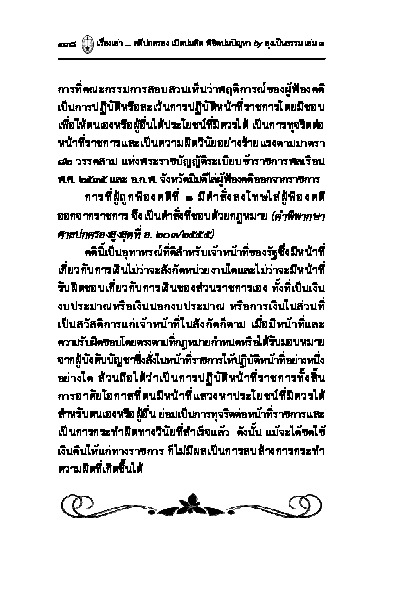 เรื่องเล่า ... คดีปกครอง เปิดปมคิด พิชิตปมปัญหา by ลุงเป็นธรรม เล่ม ๓
การที่คณะกรรมการสอบสวนเห็นว่าพฤติการณ์ของผู้ฟ้องคดี
เป็นการปฏิบัติหรือละเว้นการปฏิบัติหน้าที่ราชการโดยมิชอบ
เพื่อให้ตนเองหรือผู้อื่นได้ประโยชน์ที่มิควรได้ เป็นการทุจริตต่อ
หน้าที่ราชการและเป็นความผิดวินัยอย่างร้ายแรงตามมาตรา
๘๒ วรรคสาม แห่งพระราชบัญญัติระเบียบข้าราชการพลเรือน
พ.ศ. ๒๕๓๕ และ อ.ก.พ. จังหวัดมีมติไล่ผู้ฟ้องคดีออกจากราชการ
การที่ผู้ถูกฟ้องคดีที่ ๑ มีคำสั่งลงโทษไล่ผู้ฟ้องคดี
ออกจากราชการ จึงเป็นคำสั่งที่ชอบด้วยกฎหมาย (คำพิพากษา
ศาลปกครองสูงสุดที่ อ. ๒๐๗/๒๕๕๕)
คดีนี้เป็นอุทาหรณ์ที่ดีสำหรับเจ้าหน้าที่ของรัฐซึ่งมีหน้าที่
เกี่ยวกับการเงินไม่ว่าจะสังกัดหน่วยงานใดและไม่ว่าจะมีหน้าที่
รับผิดชอบเกี่ยวกับการเงินของส่วนราชการเอง ทั้งที่เป็นเงิน
งบประมาณหรือเงินนอกงบประมาณ หรือการเงินในส่วนที่
เป็นสวัสดิการแก่เจ้าหน้าที่ในสังกัดก็ตาม เมื่อมีหน้าที่และ
ความรับผิดชอบโดยตรงตามที่กฎหมายกำหนดหรือได้รับมอบหมาย
จากผู้บังคับบัญชาซึ่งสั่งในหน้าที่ราชการให้ปฏิบัติหน้าที่อย่างหนึ่ง
อย่างใด ล้วนถือได้ว่าเป็นการปฏิบัติหน้าที่ราชการทั้งสิ้น
การอาศัยโอกาสที่ตนมีหน้าที่แสวงหาประโยชน์ที่มิควรได้
สำหรับตนเองหรือผู้อื่น ย่อมเป็นการทุจริตต่อหน้าที่ราชการและ
เป็นการกระทำผิดทางวินัยที่สำเร็จแล้ว ดังนั้น แม้จะได้ชดใช้
เงินคืนให้แก่ทางราชการ ก็ไม่มีผลเป็นการลบล้างการกระทำ
ความผิดที่เกิดขึ้นได้